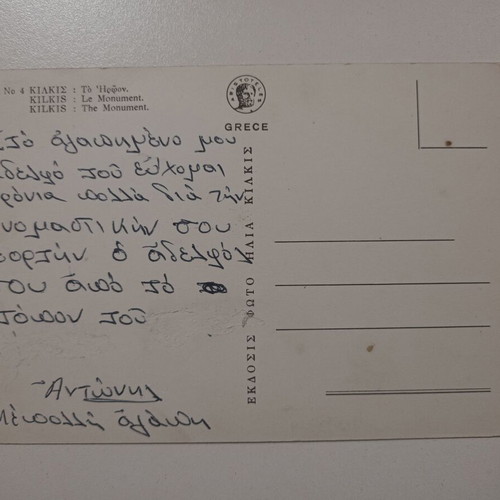 No 4 ΚΙΛΚΙΣ : Τὸ Ἡρῷον.
KILKIS : Le Monument.
KILKIS : The Monument.
ARISTOTELES
GREECE
Στό ἀγαπημένο μου
ἀδελφό ποῦ εὔχομαι
χρόνια πολλά διά τήν
ὀνομαστικήν σου
ἑορτήν ὁ ἀδελφός
σου ἀπό τό
τόπον τοῦ
Ἀντώνης
Μέ πολλή ἀγάπη
ΕΚΔΟΣΙΣ ΦΩΤΟ ΗΛΙΑ ΚΙΛΚΙΣ